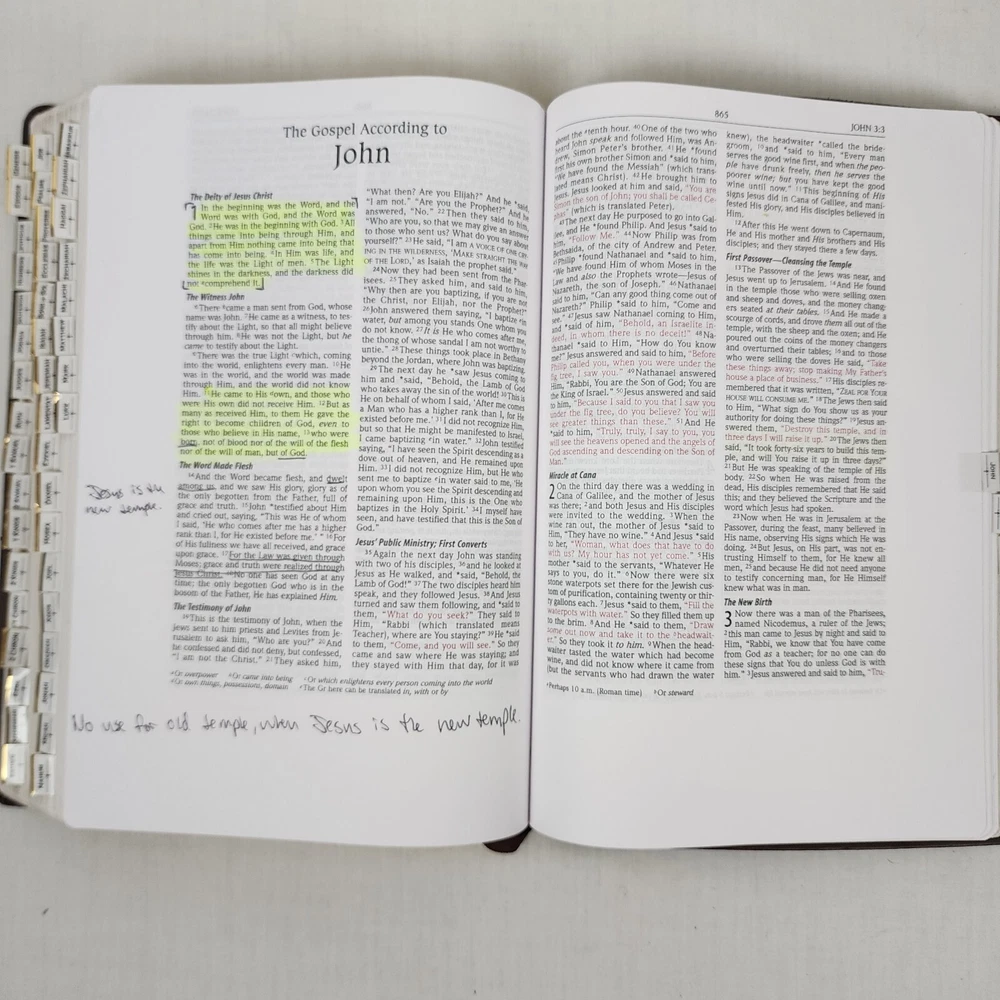 The Gospel According to
John
The Deity of Jesus Christ
1 In the beginning was the Word, and the
Word was with God, and the Word was
God. 2He was in the beginning with God. 3All
things came into being through Him, and
apart from Him nothing came into being that
has come into being. 4In Him was life, and
the life was the Light of men. 5The Light
shines in the darkness, and the darkness did
not acomprehend it.
The Witness John
6There came a man sent from God, whose
name was John. 7He came as a witness, to tes-
tify about the Light, so that all might believe
through him. 8He was not the Light, but he
came to testify about the Light.
9There was the true Light which, coming
into the world, enlightens every man. 10He
was in the world, and the world was made
through Him, and the world did not know
Him. 11He came to His own, and those who
were His own did not receive Him. 12But as
many as received Him, to them He gave the
right to become children of God, even to
those who believe in His name, 13who were
born, not of blood nor of the will of the flesh
nor of the will of man, but of God.
The Word Made Flesh
14And the Word became flesh, and dwelt
among us, and we saw His glory, glory as of
the only begotten from the Father, full of
grace and truth. 15John *testified about Him
and cried out, saying, "This was He of whom
I said, 'He who comes after me has a higher
rank than I, for He existed before me.' " 16For
of His fullness we have all received, and grace
upon grace. 17For the Law was given through
Moses; grace and truth were realized through
Jesus Christ. 18No one has seen God at any
time; the only begotten God who is in the
bosom of the Father, He has explained Him.
The Testimony of John
19This is the testimony of John, when the
Jews sent to him priests and Levites from Je-
rusalem to ask him, "Who are you?" 20And
he confessed and did not deny, but confessed,
"I am not the Christ." 21They asked him,
Jesus is the
new temple.
"What then? Are you Elijah?" And he *said,
"I am not." "Are you the Prophet?" And he
answered, "No." 22Then they said to him,
"Who are you, so that we may give an answer
to those who sent us? What do you say about
yourself?" 23He said, "I AM A VOICE OF ONE CRY-
ING IN THE WILDERNESS, 'MAKE STRAIGHT THE WAY
OF THE LORD,' as Isaiah the prophet said."
24Now they had been sent from the Phar-
isees. 25They asked him, and said to him,
"Why then are you baptizing, if you are not
the Christ, nor Elijah, nor the Prophet?"
26John answered them saying, "I baptize in
water, but among you stands One whom you
do not know. 27It is He who comes after me,
the thong of whose sandal I am not worthy to
untie." 28These things took place in Bethany
beyond the Jordan, where John was baptizing.
29The next day he *saw Jesus coming to
him and *said, "Behold, the Lamb of God
who takes away the sin of the world! 30This is
He on behalf of whom I said, 'After me comes
a Man who has a higher rank than I, for He
existed before me.' 31I did not recognize Him,
but so that He might be manifested to Israel,
I came baptizing in water." 32John testified
saying, "I have seen the Spirit descending as a
dove out of heaven, and He remained upon
Him. 33I did not recognize Him, but He who
sent me to baptize in water said to me, 'He
upon whom you see the Spirit descending and
remaining upon Him, this is the One who
baptizes in the Holy Spirit.' 34I myself have
seen, and have testified that this is the Son of
God."
Jesus' Public Ministry; First Converts
35Again the next day John was standing
with two of his disciples, 36and he looked at
Jesus as He walked, and *said, "Behold, the
Lamb of God!" 37The two disciples heard him
speak, and they followed Jesus. 38And Jesus
turned and saw them following, and *said to
them, "What do you seek?" They said to
Him, "Rabbi (which translated means
Teacher), where are You staying?" 39He *said
to them, "Come, and you will see." So they
came and saw where He was staying; and
they stayed with Him that day, for it was
Or overpower Or came into being Or which enlightens every person coming into the world
Or own things, possessions, domain The Gr here can be translated in, with or by
No use for old temple, when Jesus is the new temple.
865
JOHN 3:3
about the tenth hour. 40One of the two who
heard John speak and followed Him, was An-
drew, Simon Peter's brother. 41He *found
first his own brother Simon and *said to him,
"We have found the Messiah" (which trans-
lated means Christ). 42He brought him to
Jesus. Jesus looked at him and said, "You are
Simon the son of John; you shall be called Ce-
phas" (which is translated Peter).
43The next day He purposed to go into Gal-
ilee, and He *found Philip. And Jesus *said to
him, "Follow Me." 44Now Philip was from
Bethsaida, of the city of Andrew and Peter.
45Philip *found Nathanael and *said to him,
"We have found Him of whom Moses in the
Law and also the Prophets wrote—Jesus of
Nazareth, the son of Joseph." 46Nathanael
said to him, "Can any good thing come out of
Nazareth?" Philip *said to him, "Come and
see." 47Jesus saw Nathanael coming to Him,
and *said of him, "Behold, an Israelite in-
deed, in whom there is no deceit!" 48Na-
thanael *said to Him, "How do You know
me?" Jesus answered and said to him, "Before
Philip called you, when you were under the
fig tree, I saw you." 49Nathanael answered
Him, "Rabbi, You are the Son of God; You are
the King of Israel." 50Jesus answered and said
to him, "Because I said to you that I saw you
under the fig tree, do you believe? You will
see greater things than these." 51And He
*said to him, "Truly, truly, I say to you, you
will see the heavens opened and the angels of
God ascending and descending on the Son of
Man."
Miracle at Cana
2 On the third day there was a wedding in
Cana of Galilee, and the mother of Jesus
was there; 2and both Jesus and His disciples
were invited to the wedding. 3When the
wine ran out, the mother of Jesus *said to
Him, "They have no wine." 4And Jesus *said
to her, "Woman, what does that have to do
with us? My hour has not yet come." 5His
mother *said to the servants, "Whatever He
says to you, do it." 6Now there were six
stone waterpots set there for the Jewish cus-
tom of purification, containing twenty or thir-
ty gallons each. 7Jesus *said to them, "Fill the
waterpots with water." So they filled them up
to the brim. 8And He *said to them, "Draw
some out now and take it to the bheadwait-
er." So they took it to him. 9When the head-
waiter tasted the water which had become
wine, and did not know where it came from
(but the servants who had drawn the water
knew), the headwaiter *called the bride-
groom, 10and *said to him, "Every man
serves the good wine first, and when the peo-
ple have drunk freely, then he serves the
poorer wine; but you have kept the good
wine until now." 11This beginning of His
signs Jesus did in Cana of Galilee, and mani-
fested His glory, and His disciples believed in
Him.
12After this He went down to Capernaum,
He and His mother and His brothers and His
disciples; and they stayed there a few days.
First Passover—Cleansing the Temple
13The Passover of the Jews was near, and
Jesus went up to Jerusalem. 14And He found
in the temple those who were selling oxen
and sheep and doves, and the money chang-
ers seated at their tables. 15And He made a
scourge of cords, and drove them all out of the
temple, with the sheep and the oxen; and He
poured out the coins of the money changers
and overturned their tables; 16and to those
who were selling the doves He said, "Take
these things away; stop making My Father's
house a place of business." 17His disciples re-
membered that it was written, "ZEAL FOR YOUR
HOUSE WILL CONSUME ME." 18The Jews then said
to Him, "What sign do You show us as your
authority for doing these things?" 19Jesus an-
swered them, "Destroy this temple, and in
three days I will raise it up." 20The Jews then
said, "It took forty-six years to build this tem-
ple, and will You raise it up in three days?"
21But He was speaking of the temple of His
body. 22So when He was raised from the
dead, His disciples remembered that He said
this; and they believed the Scripture and the
word which Jesus had spoken.
23Now when He was in Jerusalem at the
Passover, during the feast, many believed in
His name, observing His signs which He was
doing. 24But Jesus, on His part, was not en-
trusting Himself to them, for He knew all
men, 25and because He did not need anyone
to testify concerning man, for He Himself
knew what was in man.
The New Birth
3 Now there was a man of the Pharisees,
named Nicodemus, a ruler of the Jews;
2this man came to Jesus by night and said to
Him, "Rabbi, we know that You have come
from God as a teacher; for no one can do
these signs that You do unless God is with
him." 3Jesus answered and said to him, "Tru-
aPerhaps 10 a.m. (Roman time) bOr steward
JOHN